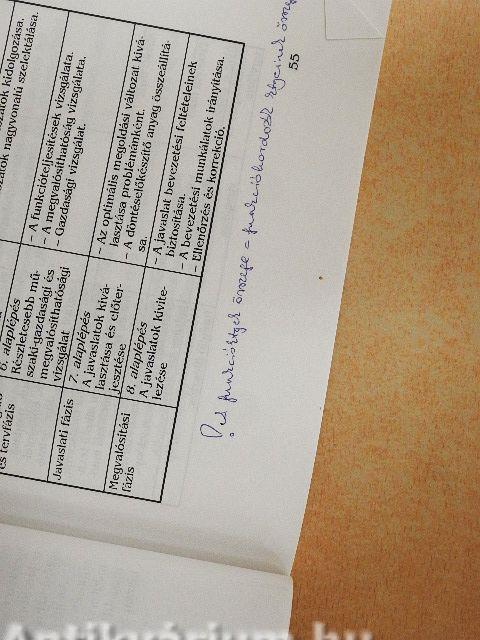 és tervfázis
6. alaplépés
Részletesebb mű-
szaki-gazdasági és
megvalósíthatósági
vizsgálat
kidolgozása.
nagyvonalú szelektálása.
– A funkcióteljesítések vizsgálata.
– A megvalósíthatóság vizsgálata.
– Gazdasági vizsgálat.
Javaslati fázis
7. alaplépés
A javaslatok kivá-
lasztása és előter-
jesztése
– Az optimális megoldási változat kivá-
lasztása problémánként.
– A döntéselőkészítő anyag összeállítá-
sa.
Megvalósítási
fázis
8. alaplépés
A javaslatok kivite-
lezése
– A javaslat bevezetési feltételeinek
biztosítása.
– A bevezetési munkálatok irányítása.
– Ellenőrzés és korrekció.
összege = funkcióhordozók
55
Antikvárium.hu